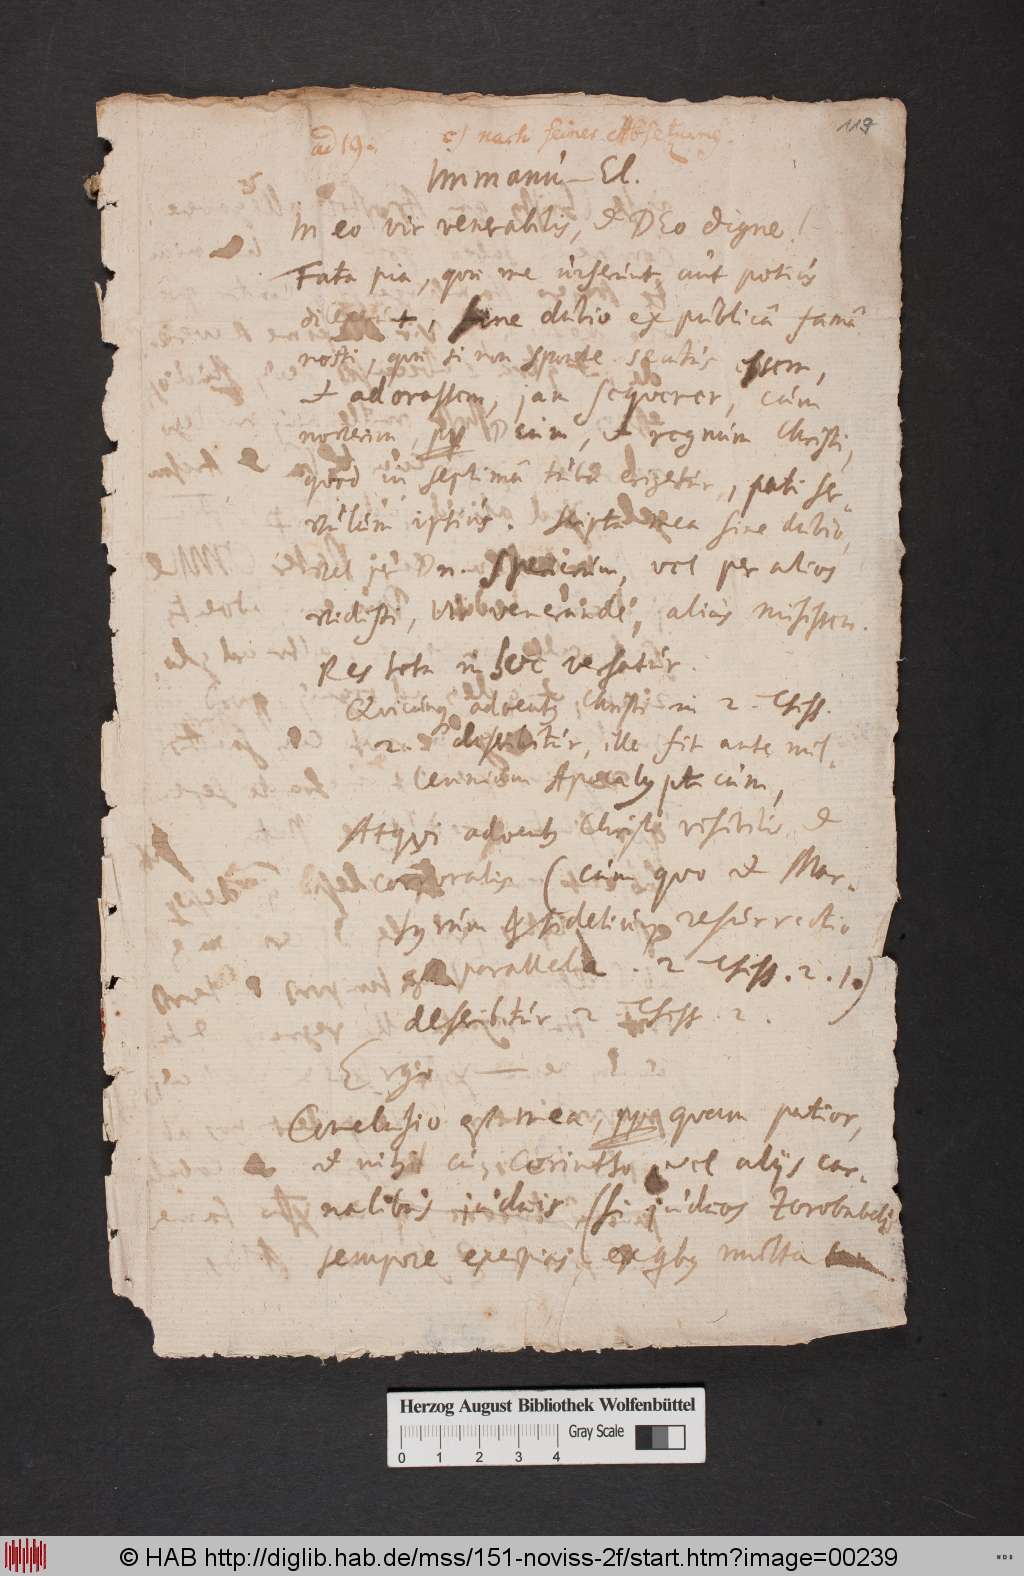 119
ad 19.
c) nach seiner Absetzung.
Immanú-El.
In eo vir venerabilis, et DEo digne!
Fata pia, quae me urserunt, aut potiús
sine dúbio ex públicâ famâ
nosti, quae si non sponte secutús essem,
et adorassem, jam sequerer, cúm
noverim, Deúm, et regnúm Christi,
quod in septimâ túbâ erigetúr, pati ser-
vúlúm ipsiús. Scripta mea sine dúbio,
vel per Dn. Spenerúm, vel per alios
vidisti, Vir venerande, aliàs misissem.
Res tota in hoc versatúr.
Quicunq adventq Christi in 2. Thess.
2. describitúr, ille fit ante mil-
lennium Apocalypticúm,
Atqui adventq Christi visibilis et
corporalis (cúm quo et Mar-
tyrúm fideliúmq resúrrectio
parallela. 2 Thess. 2. 1.)
describitúr 2 Thess. 2.
Ergo —
Conclusio est mea, quam patior,
et nihil cum Cerintho, vel alijs car-
nalibus júdaeis, (si júdaeos Zorobabelis
tempore excepias, ex qbq múlta
Herzog August Bibliothek Wolfenbüttel
Gray Scale
0 1 2 3 4
© HAB http://diglib.hab.de/mss/151-noviss-2f/start.htm?image=00239